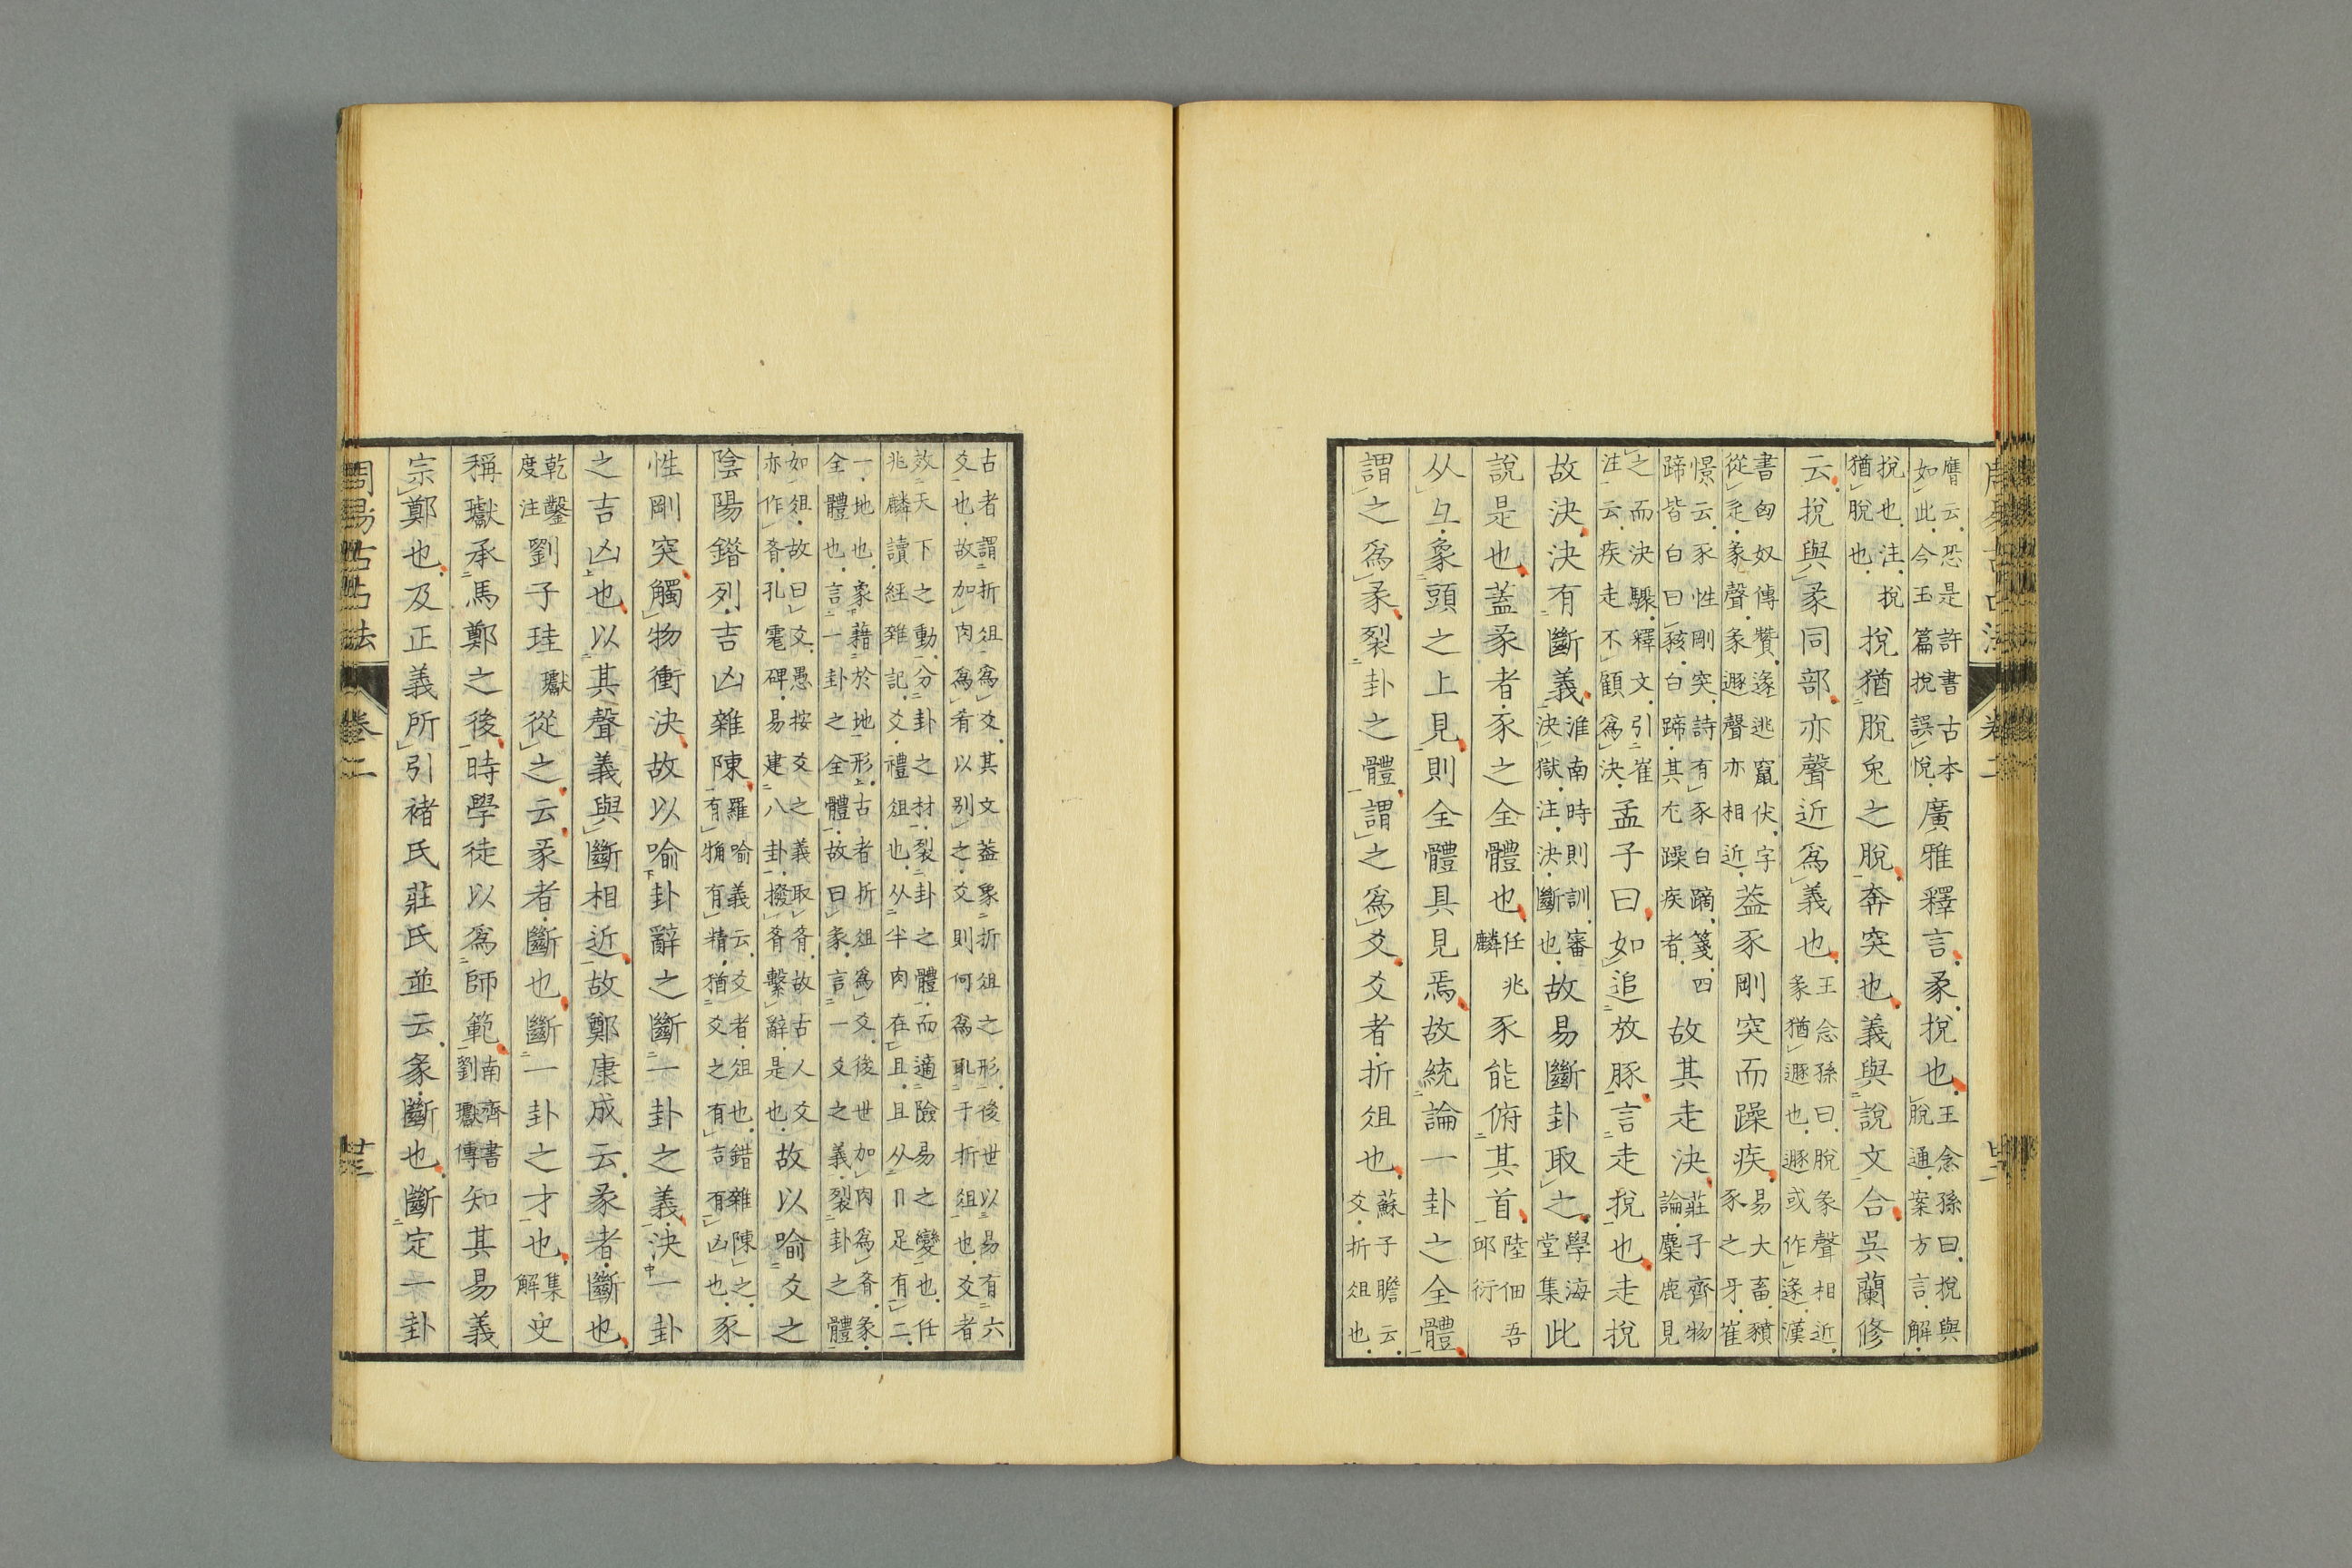 周易古占法 卷二
膺云恐是許書古本
如此今玉篇挩誤悅廣雅釋言彖挩也王念孫曰挩與
脫通案方言解
挩也注挩
猶脫也挩猶脫兔之脫奔突也義與說文合吳蘭修
云挩與彖同部亦聲近爲義也王念孫曰脫彖聲相近
彖猶遯也遯或作遂漢
書匈奴傳贊遂逃竄伏字
從辵彖聲彖遯聲亦相近蓋豕剛突而躁疾易大畜豶
豕之牙崔
憬云豕性剛突詩有豕白蹢箋四
蹄皆白曰豥白蹄其尤躁疾者故其走決莊子齊物
論麋鹿見
之而決驟釋文引崔
注云疾走不顧爲決孟子曰如追放豚言走挩也走挩
故決決有斷義淮南時則訓審
決獄注決斷也故易斷卦取之學海
堂集此
說是也蓋彖者豕之全體也任兆
麟豕能俯其首陸佃吾
邱衍
从彑象頭之上見則全體具見焉故統論一卦之全體
謂之爲彖裂卦之體謂之爲爻爻者折俎也蘇子瞻云
爻折俎也
古者謂折俎爲爻其文蓋象折俎之形後世以易有六
爻也故加肉爲肴以别之爻則何爲取于折俎也爻者
效天下之動分卦之材裂卦之體而適險易之變也任
兆麟讀經雜記爻禮俎也从半肉在且且从足有二
一地也象藉於地形古者折俎爲爻後世加肉爲肴彖
全體也言一卦之全體故曰彖言一爻之義裂卦之體
如俎故曰爻愚按爻之義取肴故古人爻
亦作肴孔碑易建八卦揆肴繫辭是也故以喻爻之
陰陽錯列吉凶雜陳羅喻義云爻者俎也錯雜陳之
有觕有精猶爻之有吉有凶也豕
性剛突觸物衝決故以喻卦辭之斷一卦之義決一卦
之吉凶也以其聲義與斷相近故鄭康成云彖者斷也
乾鑿
度注劉子珪瓛從之云彖者斷也斷一卦之才也集
解史
稱瓛承馬鄭之後時學徒以爲師範南齊書
劉瓛傳知其易義
宗鄭也及正義所引褚氏莊氏並云彖斷也斷定一卦
周易古占法 卷二 廿三